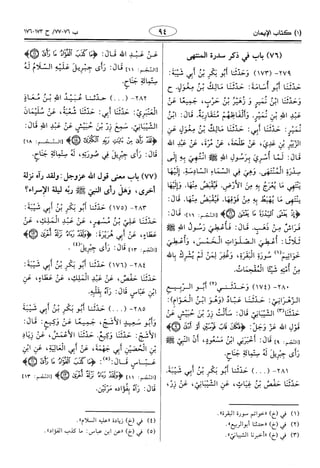 (١) كتاب الإيمان
٩٤
ب ٧٦-٧٧/ ح ١٧٣-١٧٦
(٧٦) باب في ذكر سدرة المنتهى
٢٧٩- (١٧٣) وَحَدَّثَنَا أَبُو بَكْرِ بْنُ أَبِي شَيْبَةَ:
حَدَّثَنَا أَبُو أُسَامَةَ: حَدَّثَنَا مَالِكُ بْنُ مِغْوَلٍ. ح
وَحَدَّثَنَا ابْنُ نُمَيْرٍ وَ زُهَيْرُ بْنُ حَرْبٍ، جَمِيعًا عَنْ
عَبْدِ اللهِ بْنِ نُمَيْرٍ. وَأَلْفَاظُهُمْ مُتَقَارِبَةٌ. قَالَ: ابْنُ
نُمَيْرٍ: حَدَّثَنَا أَبِي: حَدَّثَنَا مَالِكُ بْنُ مِغْوَلٍ عَنِ
الزُّبَيْرِ بْنِ عَدِيٍّ، عَنْ طَلْحَةَ، عَنْ مُرَّةَ، عَنْ عَبْدِ اللهِ
قَالَ: لَمَّا أُسْرِيَ بِرَسُولِ اللهِ ﷺ انْتُهِيَ بِهِ إِلَى
سِدْرَةِ الْمُنْتَهَى. وَهِيَ فِي السَّمَاءِ السَّادِسَةِ. إِلَيْهَا
يَنْتَهِي مَا يُعْرَجُ بِهِ مِنَ الْأَرْضِ. فَيُقْبَضُ مِنْهَا. وَإِلَيْهَا
يَنْتَهِي مَا يُهْبَطُ بِهِ مِنْ فَوْقِهَا. فَيُقْبَضُ مِنْهَا. قَالَ:
﴿إِذْ يَغْشَى السِّدْرَةَ مَا يَغْشَى﴾ [النجم: ١٦]. قَالَ:
فَرَاشٌ مِنْ ذَهَبٍ. قَالَ: فَأُعْطِيَ رَسُولُ اللهِ ﷺ
ثَلَاثًا: أُعْطِيَ الصَّلَوَاتِ الْخَمْسَ. وَأُعْطِيَ
خَوَاتِيمَ(١) سُورَةِ الْبَقَرَةِ. وَغُفِرَ لِمَنْ لَمْ يُشْرِكْ بِاللهِ
مِنْ أُمَّتِهِ شَيْئًا الْمُقْحِمَاتُ.
٢٨٠- (١٧٤) وَحَدَّثَنِي(٢) أَبُو الرَّبِيعِ
الزَّهْرَانِيُّ: حَدَّثَنَا عَبَّادٌ (وَهُوَ ابْنُ الْعَوَّامِ):
حَدَّثَنَا(٣) الشَّيْبَانِيُّ قَالَ: سَأَلْتُ زِرَّ بْنَ حُبَيْشٍ عَنْ
قَوْلِ اللهِ عَزَّ وَجَلَّ: ﴿فَكَانَ قَابَ قَوْسَيْنِ أَوْ أَدْنَى﴾
[النجم: ٩]. قَالَ: أَخْبَرَنِي ابْنُ مَسْعُودٍ، أَنَّ النَّبِيَّ ﷺ
رَأَى جِبْرِيلَ لَهُ سِتُّمِائَةِ جَنَاحٍ.
٢٨١- (...) حَدَّثَنَا أَبُو بَكْرِ بْنُ أَبِي شَيْبَةَ:
حَدَّثَنَا حَفْصُ بْنُ غِيَاثٍ، عَنِ الشَّيْبَانِيِّ، عَنْ زِرٍّ،
عَنْ عَبْدِ اللهِ قَالَ: ﴿مَا كَذَبَ الْفُؤَادُ مَا رَأَى﴾
[النجم: ١١] قَالَ: رَأَى جِبْرِيلَ عَلَيْهِ السَّلَامُ لَهُ
سِتُّمِائَةِ جَنَاحٍ.
٢٨٢- (...) حَدَّثَنَا عُبَيْدُ اللهِ بْنُ مُعَاذٍ
الْعَنْبَرِيُّ: حَدَّثَنَا أَبِي: حَدَّثَنَا شُعْبَةُ، عَنْ سُلَيْمَانَ
الشَّيْبَانِيِّ. سَمِعَ زِرَّ بْنَ حُبَيْشٍ عَنْ عَبْدِ اللهِ قَالَ:
﴿لَقَدْ رَأَى مِنْ آيَاتِ رَبِّهِ الْكُبْرَى﴾ [النجم: ١٨]
قَالَ: رَأَى جِبْرِيلَ فِي صُورَتِهِ، لَهُ سِتُّمِائَةِ جَنَاحٍ.
(٧٧) باب معنى قول الله عزوجل: ولقد رآه نزلة
أخرى، وهل رأى النبي ﷺ ربه ليلة الإسراء؟
٢٨٣- (١٧٥) حَدَّثَنَا أَبُو بَكْرِ بْنُ أَبِي شَيْبَةَ:
حَدَّثَنَا عَلِيُّ بْنُ مُسْهِرٍ، عَنْ عَبْدِ الْمَلِكِ، عَنْ
عَطَاءٍ، عَنْ أَبِي هُرَيْرَةَ: ﴿وَلَقَدْ رَآهُ نَزْلَةً أُخْرَى﴾
[النجم: ١٣] قَالَ: رَأَى جِبْرِيلَ(٤).
٢٨٤- (١٧٦) حَدَّثَنَا أَبُو بَكْرِ بْنُ أَبِي شَيْبَةَ:
حَدَّثَنَا حَفْصٌ، عَنْ عَبْدِ الْمَلِكِ، عَنْ عَطَاءٍ، عَنِ
ابْنِ عَبَّاسٍ قَالَ: رَآهُ بِقَلْبِهِ.
٢٨٥- (...) حَدَّثَنَا أَبُو بَكْرِ بْنُ أَبِي شَيْبَةَ
وَأَبُو سَعِيدٍ الْأَشَجُّ، جَمِيعًا عَنْ وَكِيعٍ. قَالَ:
الْأَشَجُّ: حَدَّثَنَا وَكِيعٌ: حَدَّثَنَا الْأَعْمَشُ، عَنْ زِيَادِ
بْنِ الْحُصَيْنِ أَبِي جَهْمَةَ، عَنْ أَبِي الْعَالِيَةِ، عَنِ ابْنِ
عَبَّاسٍ قَالَ(٥): ﴿مَا كَذَبَ الْفُؤَادُ مَا رَأَى﴾
[النجم: ١١]. ﴿وَلَقَدْ رَآهُ نَزْلَةً أُخْرَى﴾ [النجم: ١٣]
قَالَ: رَآهُ بِفُؤَادِهِ مَرَّتَيْنِ.
(١) في (خ) «خواتم سورة البقرة».
(٢) في (خ) «حدثنا أبوالربيع».
(٣) في (خ) «أخبرنا الشيباني».
(٤) في (خ) زيادة «عليه السلام».
(٥) في (خ) «عن ابن عباس: ما كذب الفؤاد».